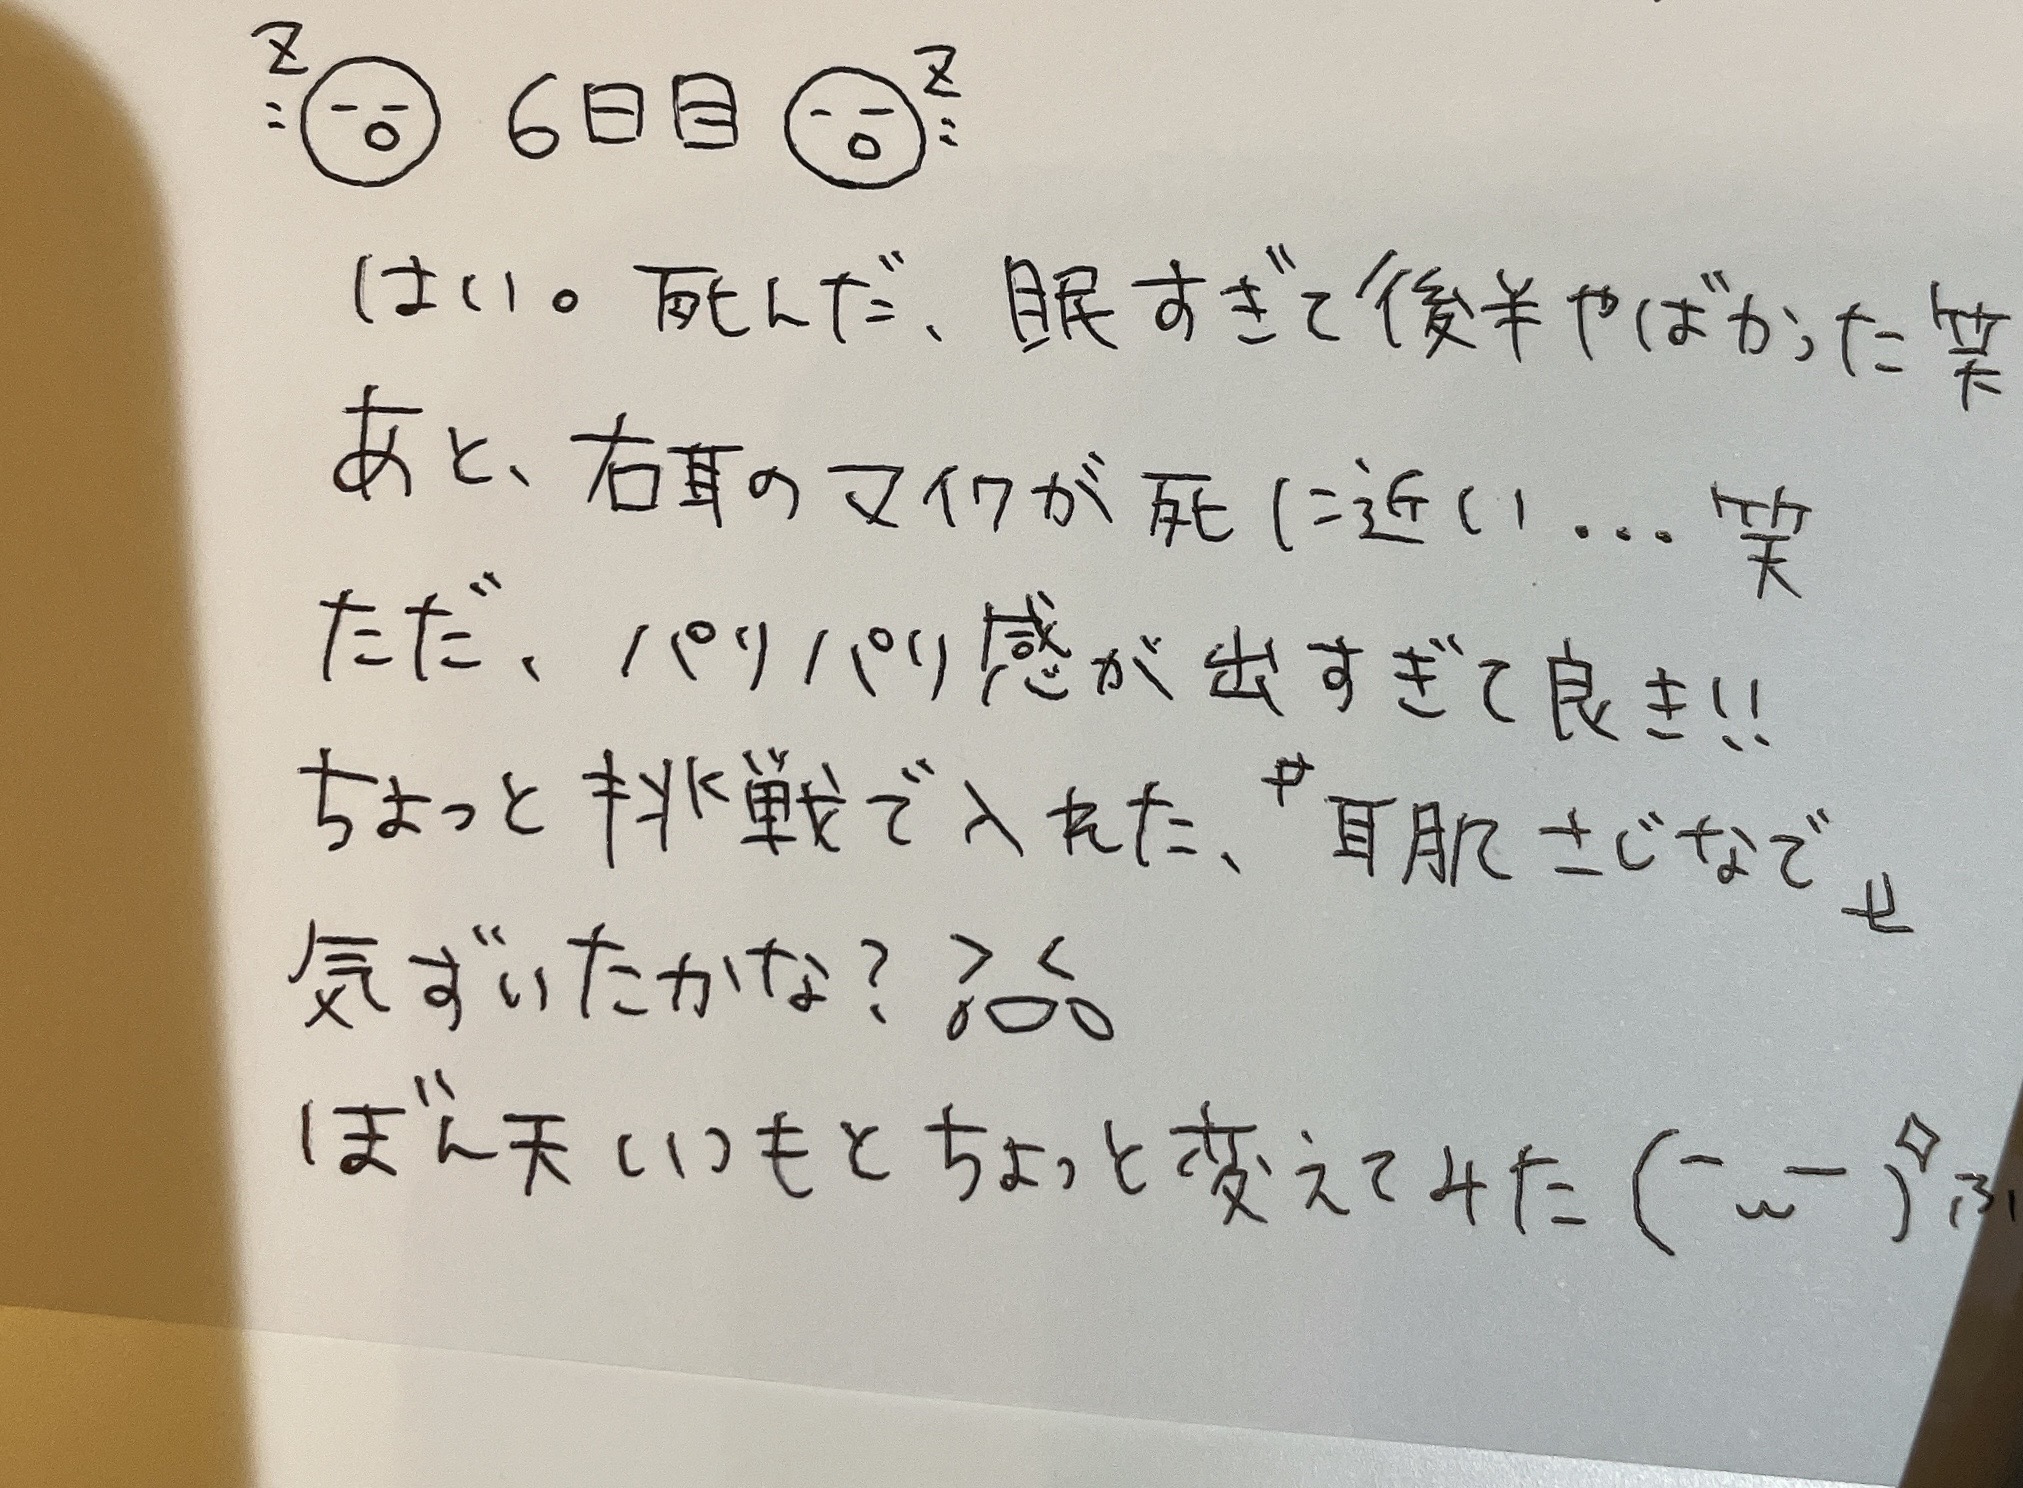 6日目
はい。死んだ、眠すぎて後半やばかった笑
あと、右耳のマイクが死に近い...笑
ただ、パリパリ感が出すぎて良き!!
ちょっと挑戦で入れた、〝耳肌さじなで〟
気ずいたかな?
ぼん天いつもとちょっと変えてみた(¯ω¯)ふ